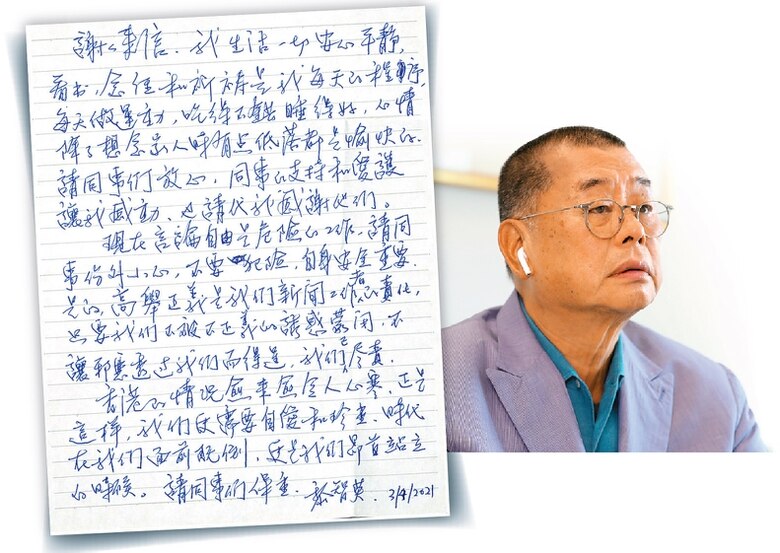 謝々來信．我生活一切安心平靜，
看书，念佳和祈祷是我每天的程序，
每天做運动，吃得不錯睡得好，心情
除了想念家人時有点低落都是愉快的．
請同事们放心，同事的支持和愛護
讓我感动，也請代我感謝他们。
現在言論自由是危險的工作，請同
事份外小心，不要犯险，自身安全重要．
是的，高舉正義是我们新闻工作者的責任，
只要我们不被不正義的誘惑蒙闭，不
讓邪惡透过我们而得逞，我们已尽責．
香港的情況愈來愈令人心寒．正是
這樣，我们更需要自愛和珍重．時代
在我们面前，是我们昂首站立
的時候。請同事们保重．黎智英．3/4/2021